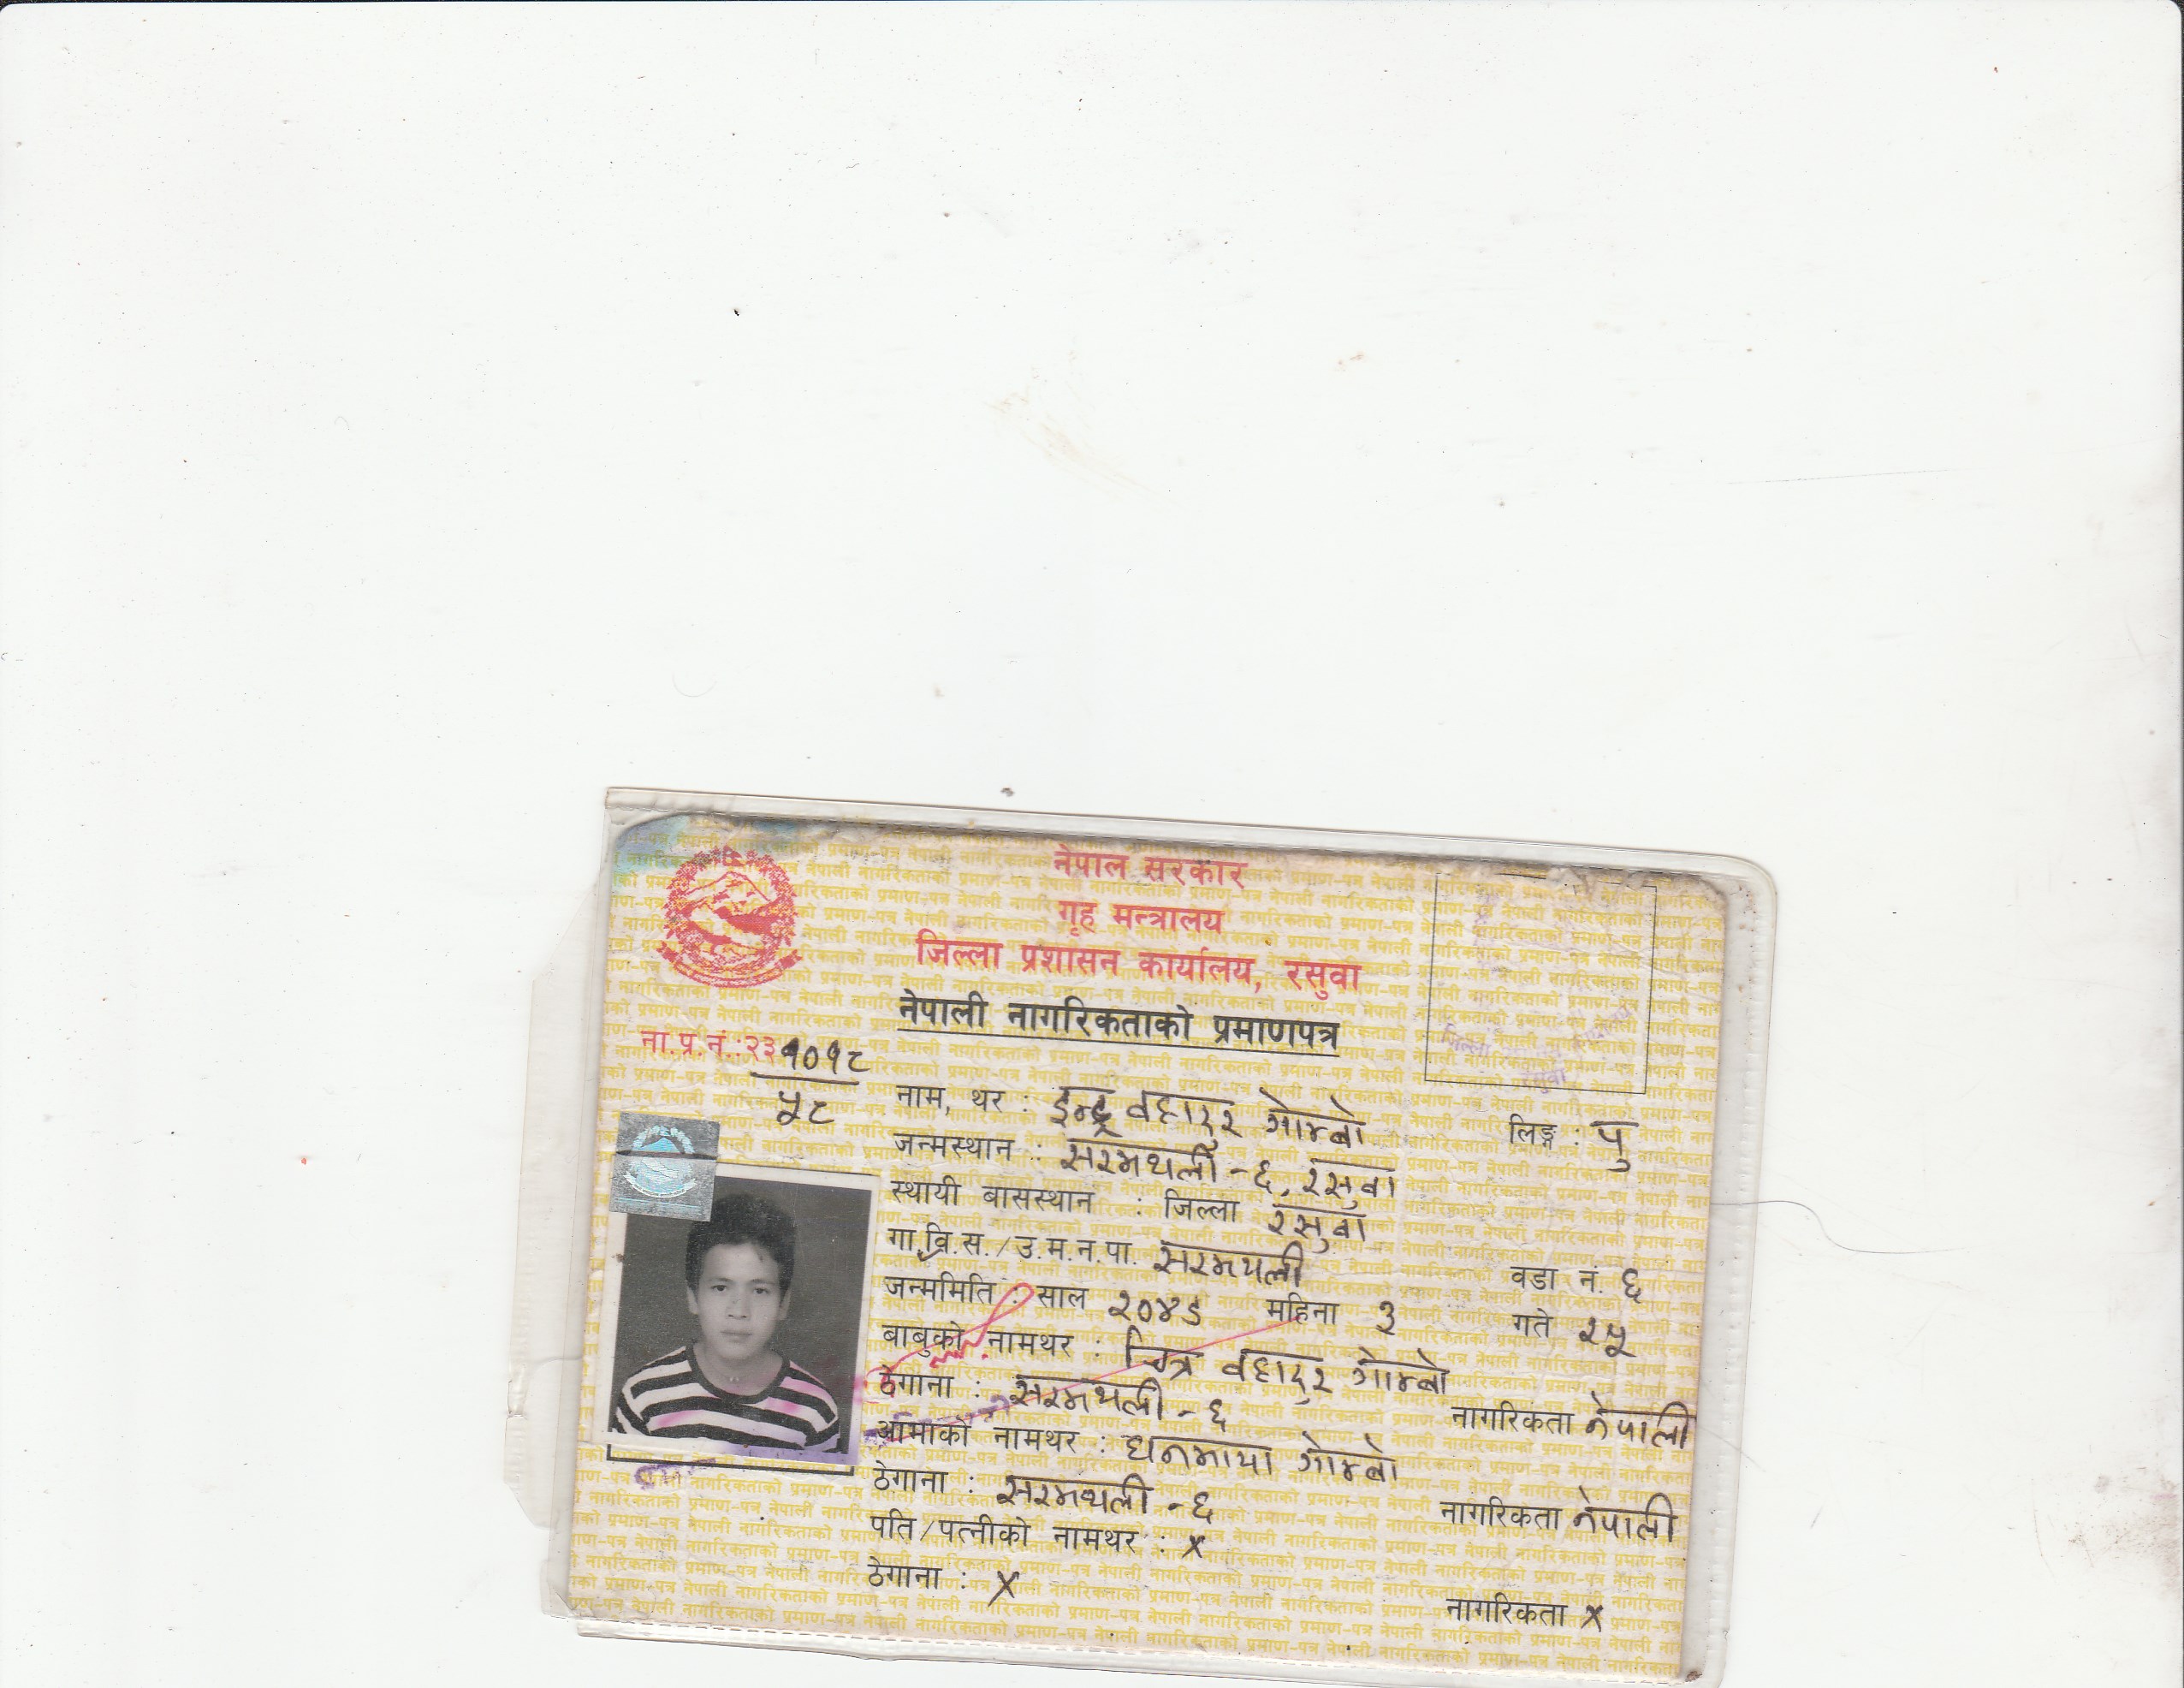 नेपाल सरकार
गृह मन्त्रालय
जिल्ला प्रशासन कार्यालय, रसुवा
नेपाली नागरिकताको प्रमाणपत्र
ना.प्र.नं.:२३१०१८
५८
नाम, थर : इन्द्र वहादुर गोम्बो लिङ्ग : पु
जन्मस्थान : सरमथली -६, रसुवा
स्थायी बासस्थान : जिल्ला रसुवा
गा.वि.स./उ.म.न.पा. सरमथली वडा नं. ६
जन्ममिति : साल २०४८ महिना ३ गते २५
बाबुको नामथर : चित्र वहादुर गोम्बो
ठेगाना : सरमथली -६ नागरिकता नेपाली
आमाको नामथर : धनमाया गोम्बो
ठेगाना : सरमथली -६ नागरिकता नेपाली
पति/पत्नीको नामथर : x
ठेगाना : x नागरिकता x